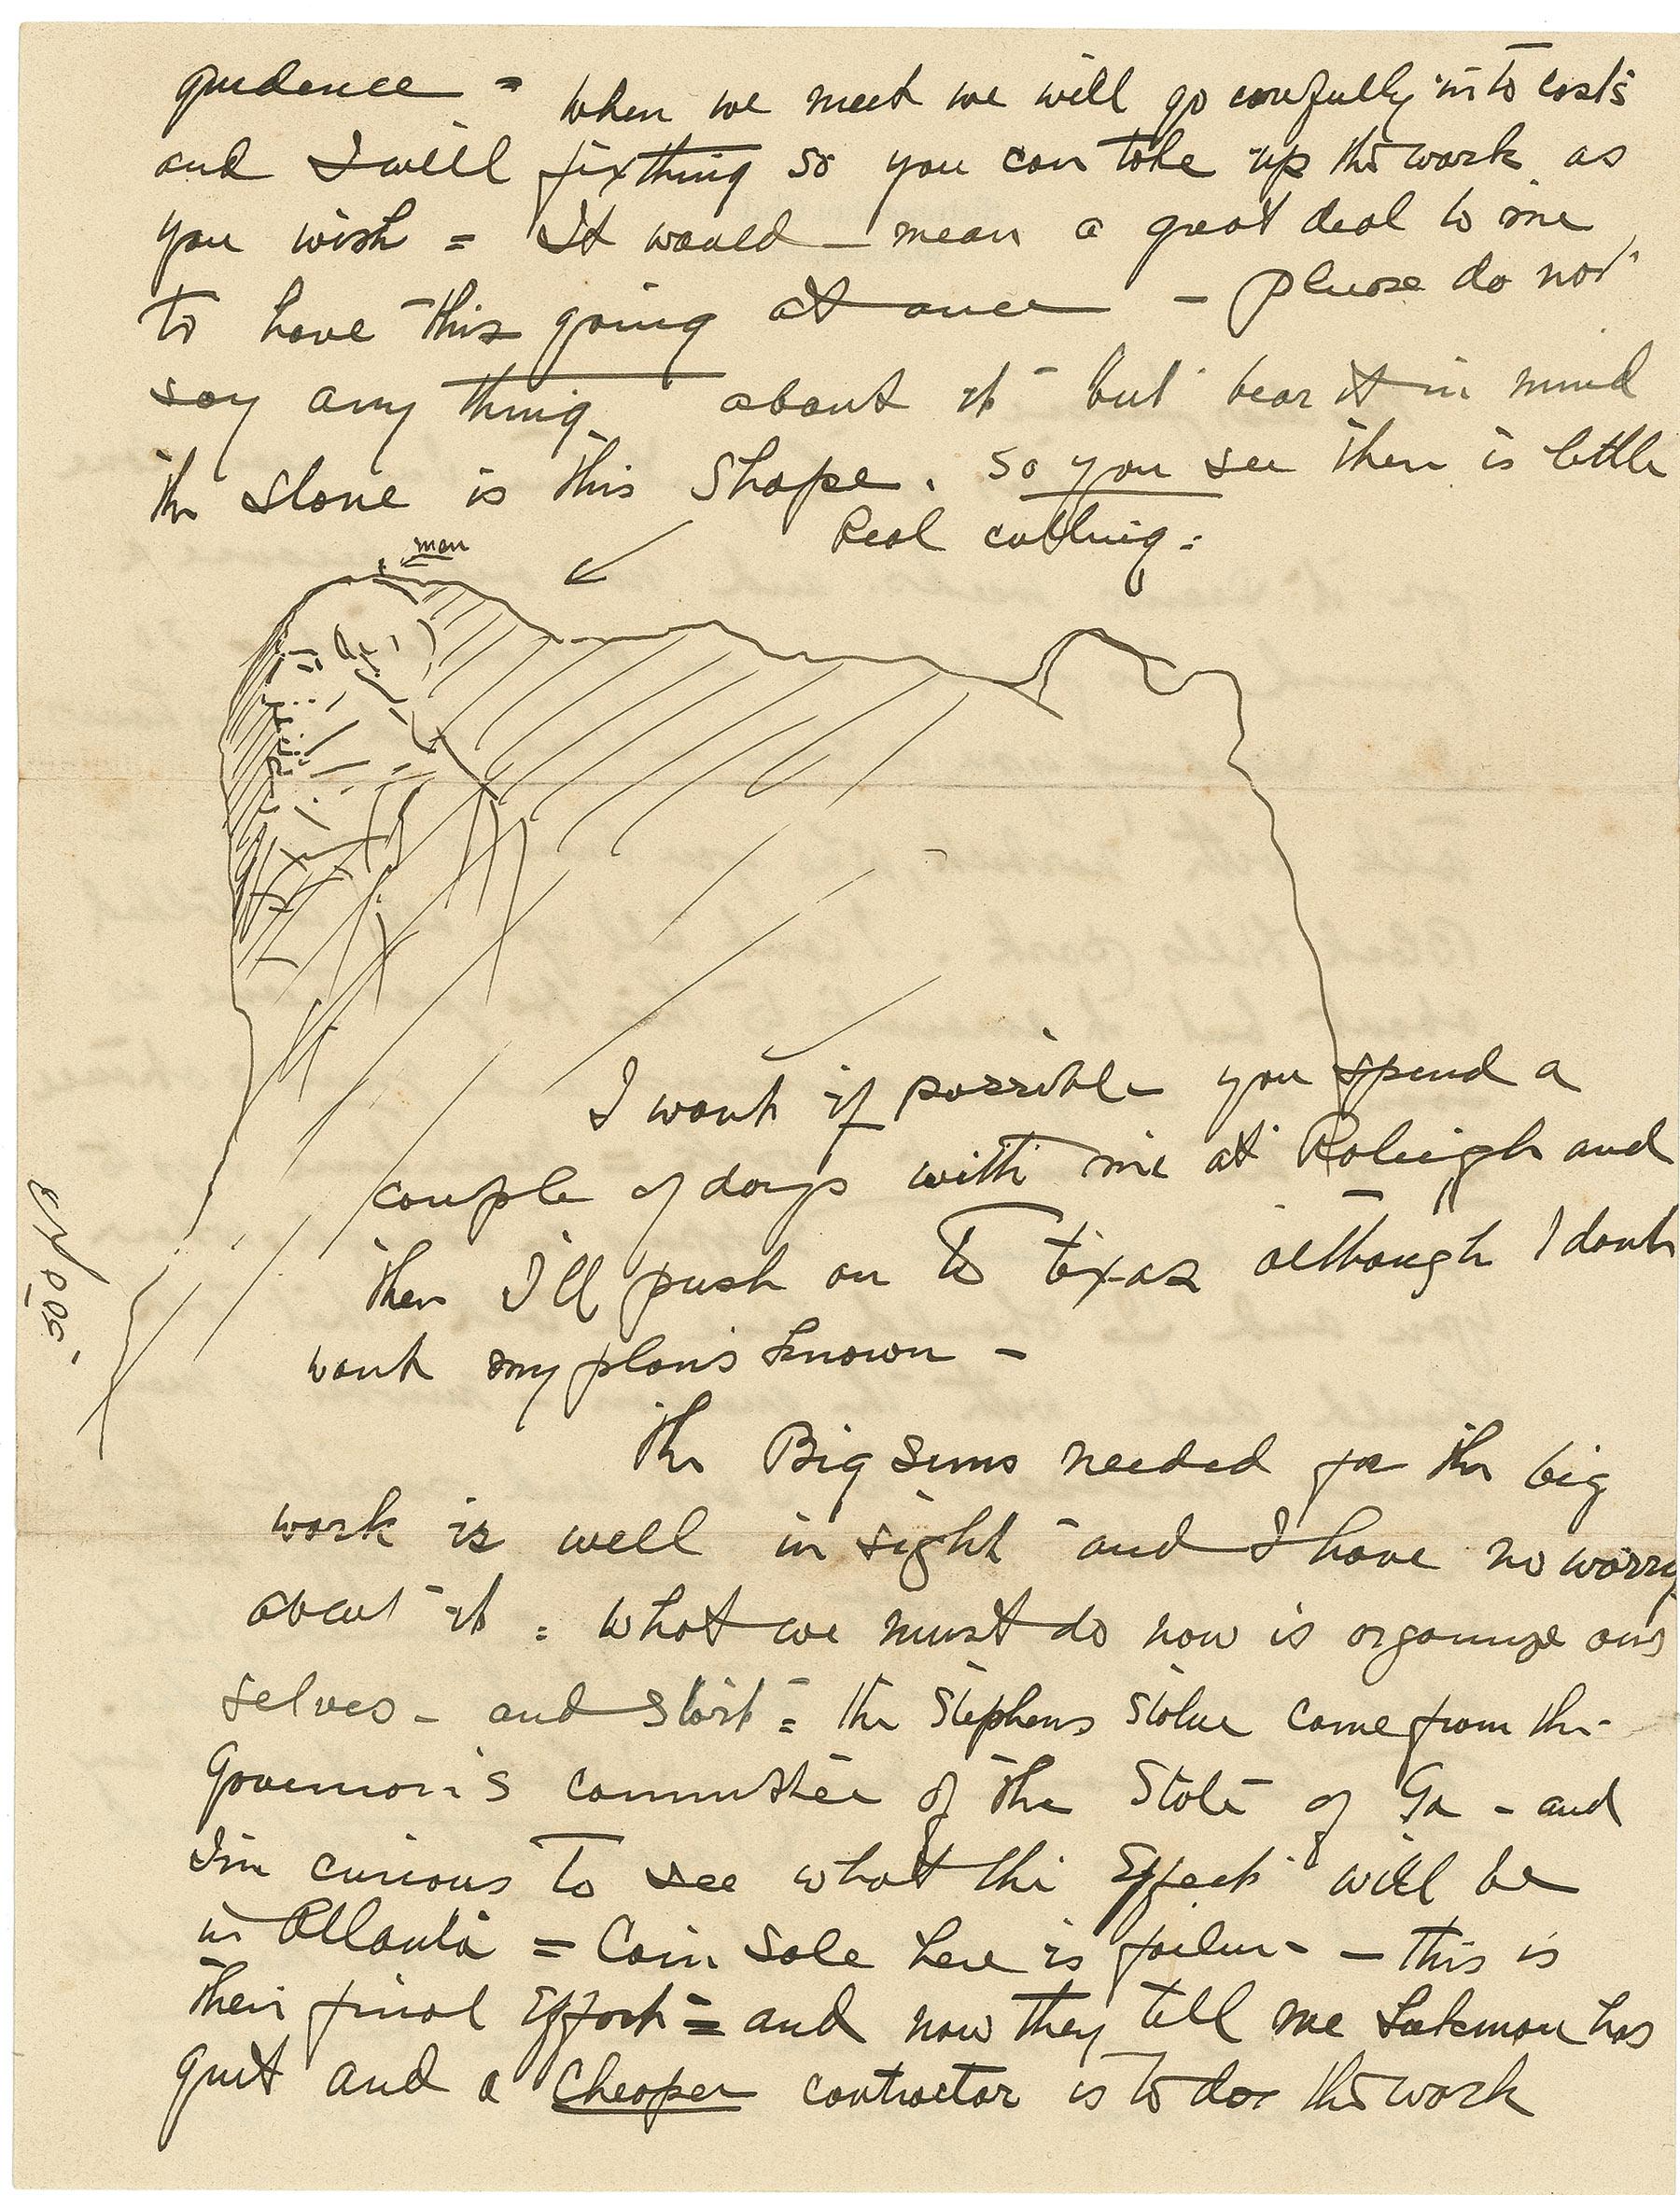 guidence = when we meet we will go carefully into costs
and I will fix thing so you can take up this work as
you wish = It would mean a great deal to me
to have this going at once - please do not
say any thing about it - but bear it in mind
the stone is this shape. so you see ther is little
Real cutting =
man
I want if possible you spend a
couple of days with me at Raleigh and
then I'll push on to Texas although I dont
want my plans known -
500 ft
The Big sums needed for the big
work is well in sight - and I have no worry
about it = what we must do now is organize our
selves - and start = the Stephens Statue came from the
Governor's committee of the State of Ga - and
I'm curious to see what the Effect will be
in Atlanta = Coin sale here is failure - this is
their final Effort = and now they tell me Lukman has
quit and a cheaper contractor is to do the work